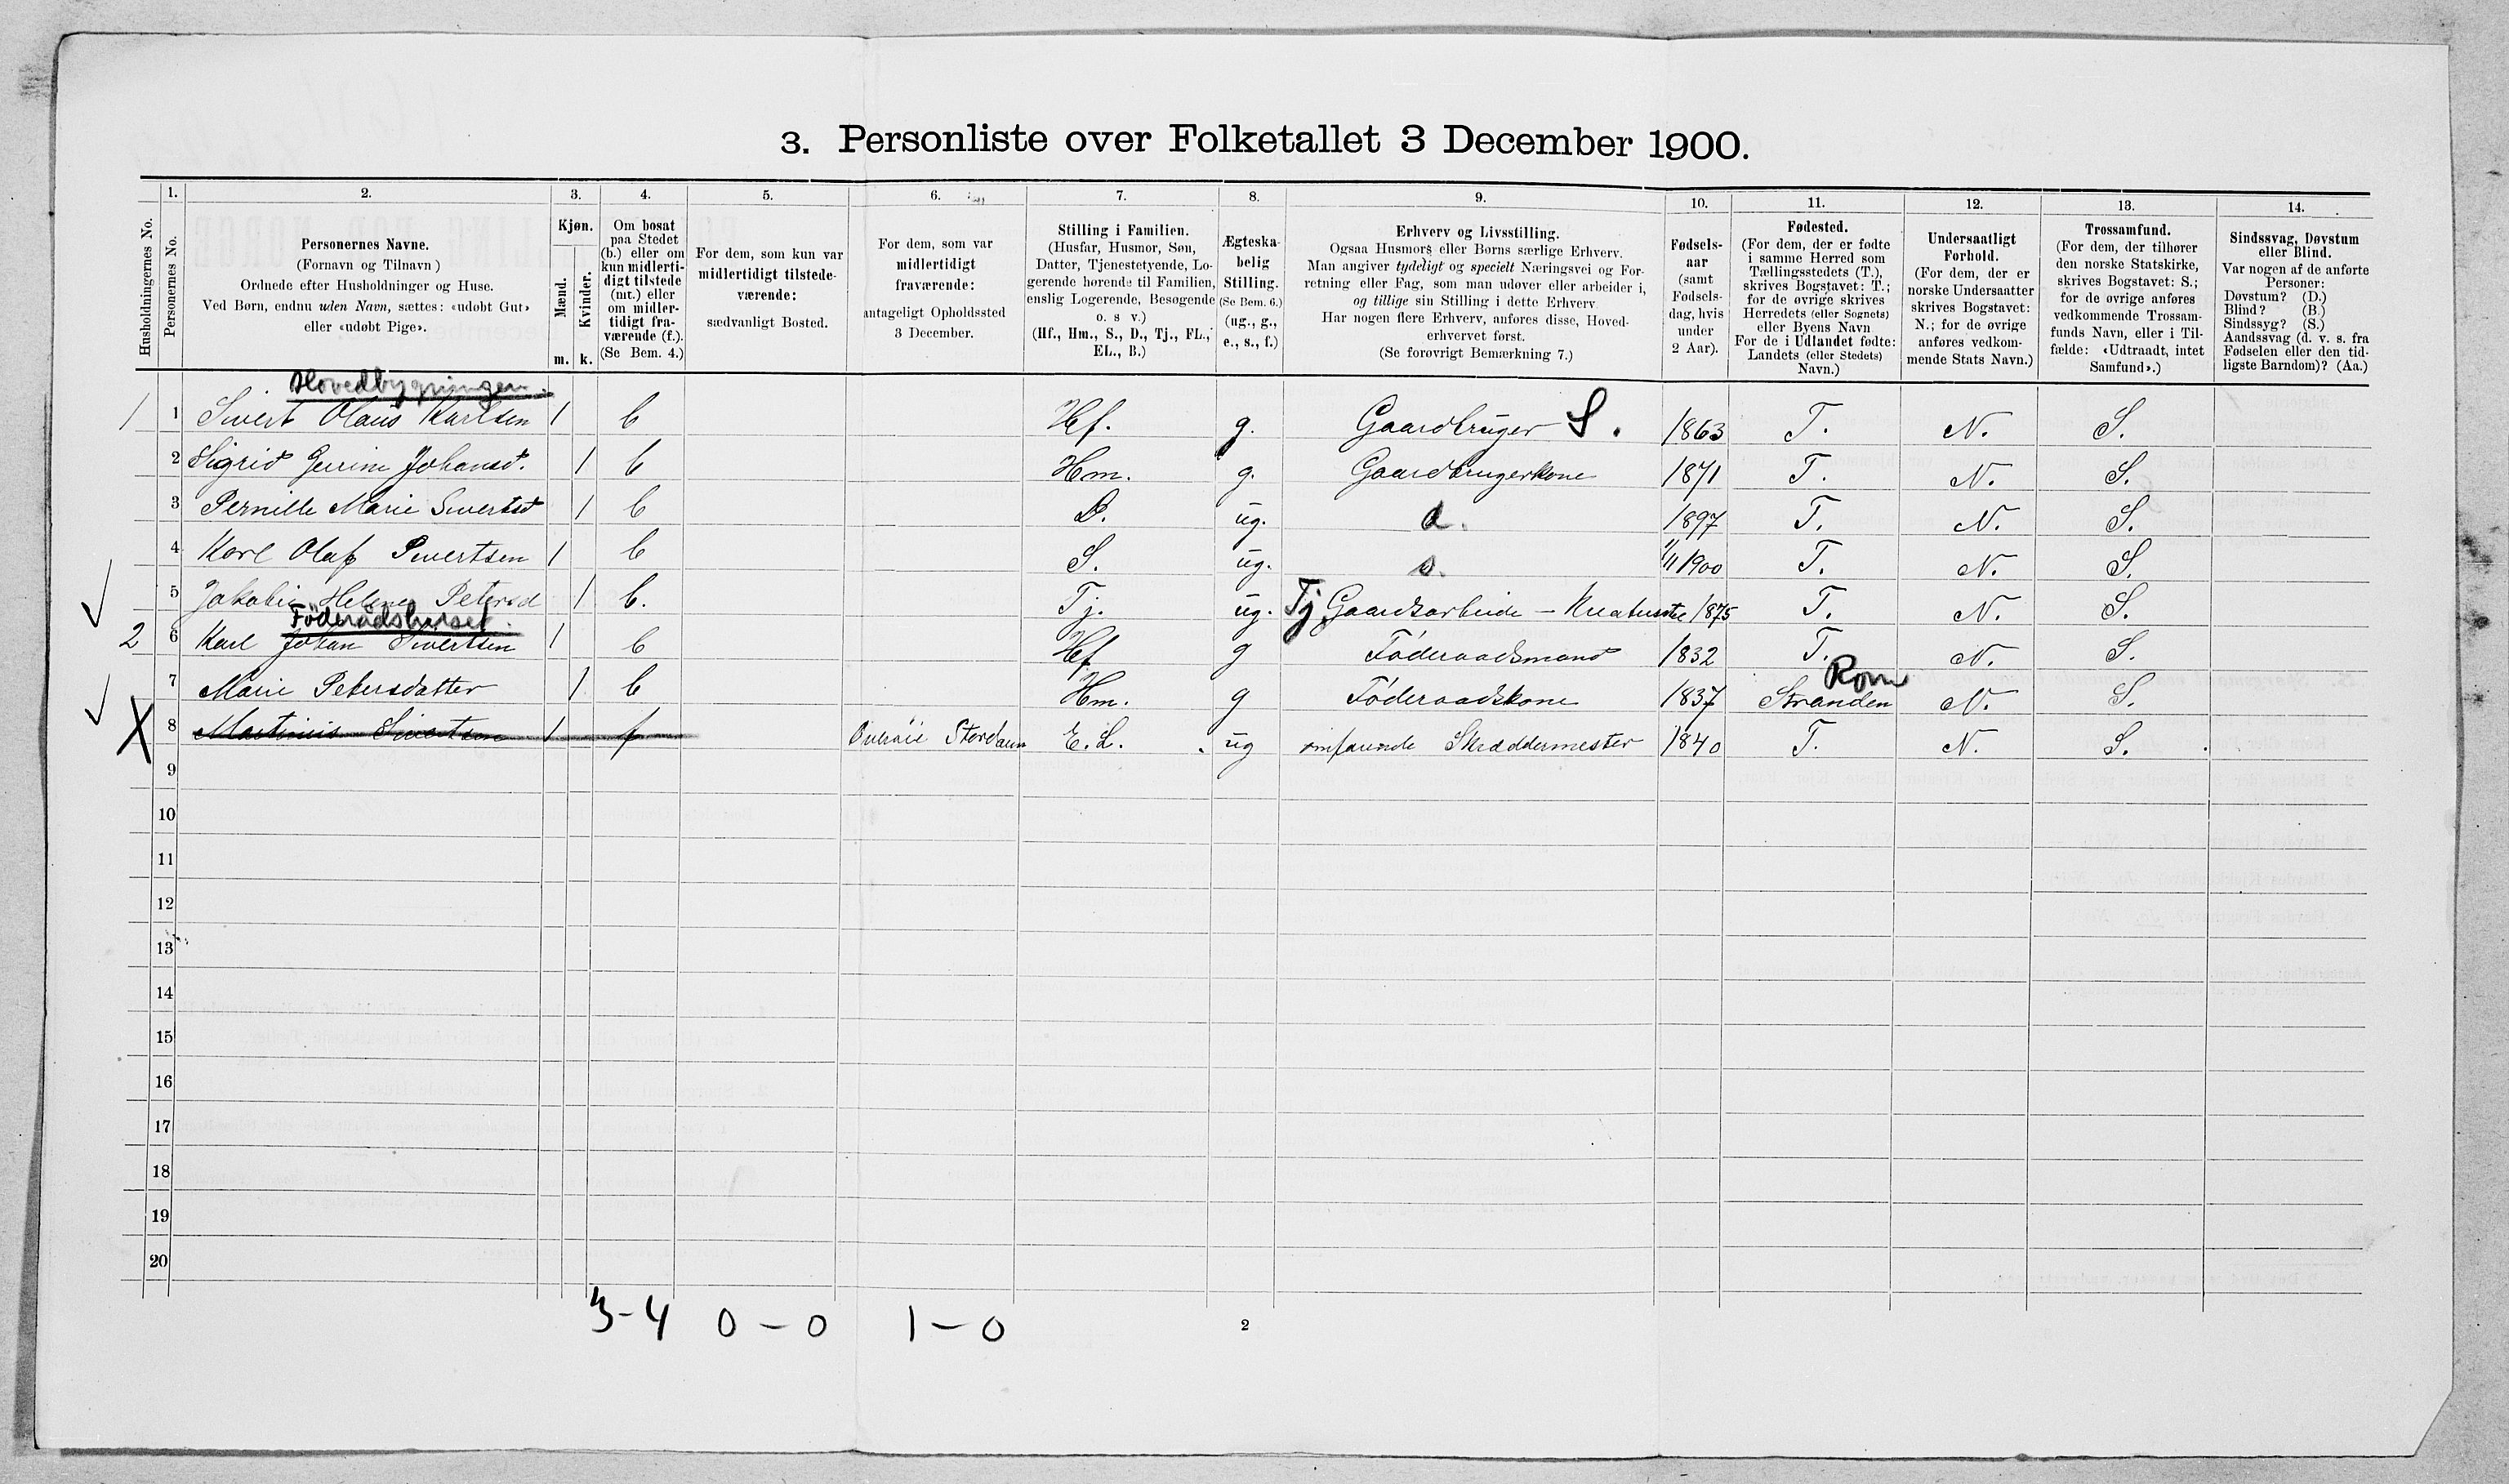 3. Personliste over Folketallet 3 December 1900.
Husholdningernes No.
1.
Personernes No.
2.
Personernes Navne.
(Fornavn og Tilnavn)
Ordnede efter Husholdninger og Huse.
Ved Børn, endnu uden Navn, sættes: «udøbt Gut»
eller «udøbt Pige».
3.
Kjøn.
Mænd.
Kvinder.
m. k.
4.
Om bosat
paa Stedet
(b.) eller om
kun midlerti-
digt tilstede
(mt.) eller
om midler-
tidigt fra-
værende (f.).
(Se Bem. 4.)
5.
For dem, som kun var
midlertidigt tilstede-
værende:
sædvanligt Bosted.
6.
For dem, som var
midlertidigt
fraværende:
antageligt Opholdssted
3 December.
7.
Stilling i Familien.
(Husfar, Husmor, Søn,
Datter, Tjenestetyende, Lo-
gerende hørende til Familien,
enslig Logerende, Besøgende
o. s v.)
(Hf., Hm., S., D., Tj., FL.,
EL., B.)
8.
Ægteska-
belig
Stilling.
(Se Bem. 6.)
(ug., g.,
e., s., f.)
9.
Erhverv og Livsstilling.
Ogsaa Husmors eller Børns særlige Erhverv.
Man angiver tydeligt og specielt Næringsvei og For-
retning eller Fag, som man udøver eller arbeider i,
og tillige sin Stilling i dette Erhverv.
Har nogen flere Erhverv, anføres disse, Hoved-
erhvervet først.
(Se forøvrigt Bemærkning 7.)
10.
Fødsels-
aar
(samt
Fødsels-
dag, hvis
under
2 Aar).
11.
Fødested.
(For dem, der er fødte
i samme Herred som
Tællingsstedets (T.),
skrives Bogstavet: T.;
for de øvrige skrives
Herredets (eller Sognets)
eller Byens Navn
For de i Udlandet fødte:
Landets (eller Stedets)
Navn.)
12.
Undersaatligt
Forhold.
(For dem, der er
norske Undersaatter
skrives Bogstavet:
N.; for de øvrige
anføres vedkom-
mende Stats Navn.)
13.
Trossamfund.
(For dem, der tilhører
den norske Statskirke,
skrives Bogstavet: S.;
for de øvrige anføres
vedkommende Trossam-
funds Navn, eller i Til-
fælde: «Udtraadt, intet
Samfund».)
14.
Sindssvag, Døvstum
eller Blind.
Var nogen af de anførte
Personer:
Døvstum? (D.)
Blind? (B.)
Sindssyg? (S.)
Aandssvag (d. v. s. fra
Fødselen eller den tid-
ligste Barndom)? (Aa.)
Hovedbygningen.
1 1 Sivert Olaus Karlsen 1 b Hf. g. Gaardbruger S. 1863 T. N. S.
2 Sigrid Johansd. 1 b Hm. g. Gaardbrugerkone 1871 T. N. S.
3 Pernille Marie Sivertsd 1 b D. ug. d. 1897 T. N. S.
4 Karl Olaf Sivertsen 1 b S. ug. s. 1/11 1900 T. N. S.
5 Jakobie Helene Petersd 1 b. Tj. ug. Tj Gaardsarbeide – 1875 T. N. S.
Föderådshuset.
2 6 Karl Johan Sivertsen 1 b Hf g Föderaadsmand 1832 T. N. S.
Rom
7 Marie Petersdatter 1 b Hm. g Föderaadskone 1837 Stranden N. S.
X 8 Martinus Sivertsen 1 f Overøie Stordalen E. L. ug omfarende Skræddermester 1840 T. N. S.
9
10
11
12
13
14
15
16
17
18
19
20
3-4 0-0 1-0
2